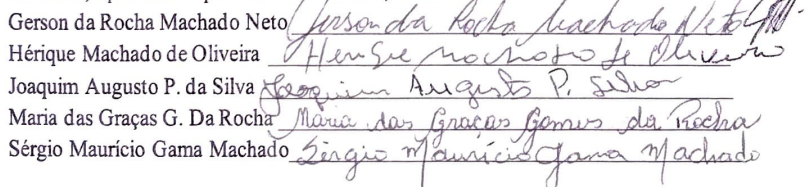 Gerson da Rocha Machado Neto Gerson da Rocha Machado Neto
Hérique Machado de Oliveira Henrique Machado de Oliveira
Joaquim Augusto P. da Silva Joaquim Augusto P. Silva
Maria das Graças G. Da Rocha Maria das Graças Gomes da Rocha
Sérgio Maurício Gama Machado Sérgio Maurício Gama Machado